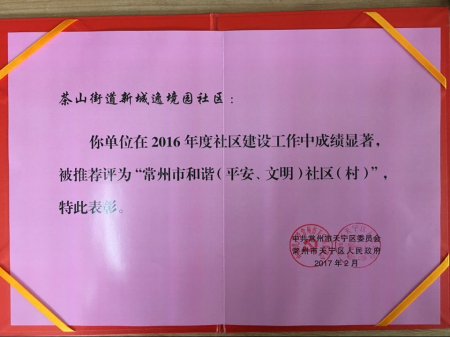 茶山街道新城逸境园社区：
你单位在2016年度社区建设工作中成绩显著，
被推荐评为“常州市和谐（平安、文明）社区（村）”，
特此表彰。
中共常州市天宁区委员会
常州市天宁区人民政府
2017年2月